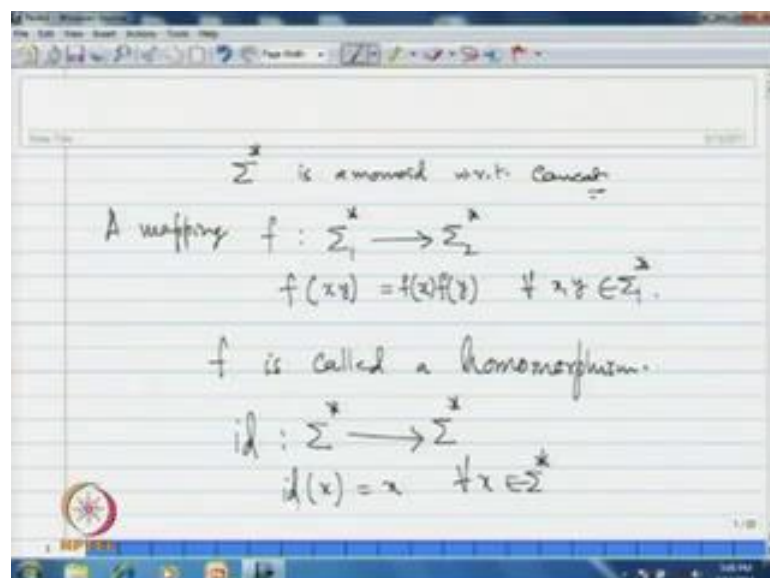 Σ* is a monoid w.r.t. Concat
A mapping f : Σ₁* ⟶ Σ₂*
f(xy) = f(x)f(y) ∀ x, y ∈ Σ₁*.
f is called a homomorphism.
id : Σ* ⟶ Σ*
id(x) = x ∀ x ∈ Σ*